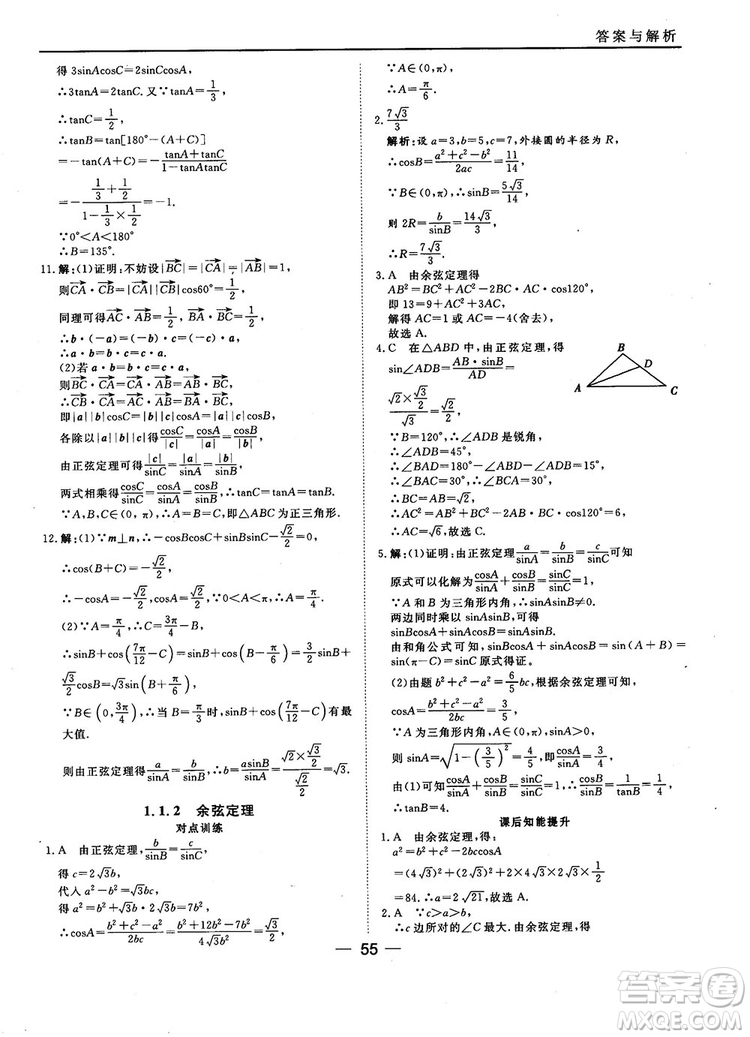 答案与解析
得 3sinAcosC=2sinCcosA,
∴3tanA=2tanC.又∵tanA=1/3,
∴tanC=1/2,
∴tanB=tan[180°-(A+C)]
=-tan(A+C)=-(tanA+tanC)/(1-tanAtanC)
=-(1/3+1/2)/(1-1/3×1/2)=-1.
∵0°<A<180°
∴B=135°.
11.解:(1)证明:不妨设|BC|=|CA|=|AB|=1,
则CA·CB=|CA||CB|cos60°=1/2,
同理可得AC·AB=BA·BC=1/2,
∴b·(-a)=(-b)·c=(-a)·c,
∴a·b=b·c=a·c.
(2)若a·b=b·c=a·c,
则BC·CA=CA·AB=BC·AB,
∴CB·CA=CA·AB=BC·BA,
即|a||b|cosC=|b||c|cosA=|a||c|cosB,
各除以|a||b||c|得cosC/|c|=cosA/|a|=cosB/|b|,
由正弦定理可得|c|/sinC=|a|/sinA=|b|/sinB,
两式相乘得cosC/sinC=cosA/sinA=cosB/sinB,∴tanC=tanA=tanB.
∵A,B,C∈(0,π),∴A=B=C,即△ABC为正三角形.
12.解:(1)∵m⊥n,∴-cosBcosC+sinBsinC-√2/2=0,
∴cos(B+C)=-√2/2,
∴-cosA=-√2/2,∴cosA=√2/2,∵0<A<π,∴A=π/4.
(2)∵A=π/4,∴C=3π/4-B,
∴sinB+cos(C-7π/12)=sinB+cos(π/6-B)=sinB+√3/2cosB+1/2sinB=√3sin(B+π/6),
∵B∈(0,3π/4),∴当B=π/3时,sinB+cos(C-7π/12)有最
大值.
则由正弦定理得a/sinA=b/sinB,∴b=asinB/sinA=(√2×√3/2)/(√2/2)=√3.
1.1.2 余弦定理
对点训练
1.A 由正弦定理,b/sinB=c/sinC,
得c=2√3b,
代入a²-b²=√3bc,
得a²-b²=√3b·2√3b=6b²,
∴cosA=(b²+c²-a²)/2bc=(b²+12b²-7b²)/4√3b²=√3/2,
∵A∈(0,π),
∴A=π/6.
2.7√3/3
解析:设a=3,b=5,c=7,外接圆的半径为R,
∴cosB=(a²+c²-b²)/2ac=11/14,
∵B∈(0,π),∴sinB=5√3/14,
则2R=b/sinB=14√3/3,
∴R=7√3/3.
3.A 由余弦定理得
AB²=BC²+AC²-2BC·AC·cos120°,
即13=9+AC²+3AC,
解得AC=1或AC=-4(舍去),
故选A.
4.C 在△ABD中,由正弦定理,得
sin∠ADB=AB·sinB/AD=
(√2×√3/2)/√3=√2/2,
∵B=120°,∴∠ADB是锐角,
∴∠ADB=45°,
∴∠BAD=180°-∠ADB-∠B=15°,
∴∠BAC=30°,∴∠C=30°,
∴BC=AB=√2,
∴AC=√6,故选C.
B
D
A
C
5.解:(1)证明:由正弦定理a/sinA=b/sinB=c/sinC可知
原式可以化解为cosA/sinA+cosB/sinB=sinC/sinC=1.
∵A和B为三角形内角,∴sinAsinB≠0.
两边同时乘以sinAsinB,可得
sinBcosA+sinAcosB=sinAsinB,
由和角公式可知,sinBcosA+sinAcosB=sin(A+B)=
sin(π-C)=sinC原式得证.
(2)由题b²+c²-a²=6/5bc,根据余弦定理可知,
cosA=(b²+c²-a²)/2bc=3/5.
∵A为三角形内角,A∈(0,π),sinA>0,
则sinA=√(1-(3/5)²)=4/5,即cosA/sinA=3/4,
由(1)可知cosA/sinA+cosB/sinB=sinC/sinC=1,∴cosB/sinB=1/tanB=1/4,
∴tanB=4.
课后知能提升
1.A 由余弦定理,得:
a²=b²+c²-2bccosA
=(4√3)²+(2√3)²+2×4√3×2√3×1/2
=84.∴a=2√21,故选A.
2.A ∵c>a>b,
∴c边所对的角∠C最大.由余弦定理,得
55
作业精灵